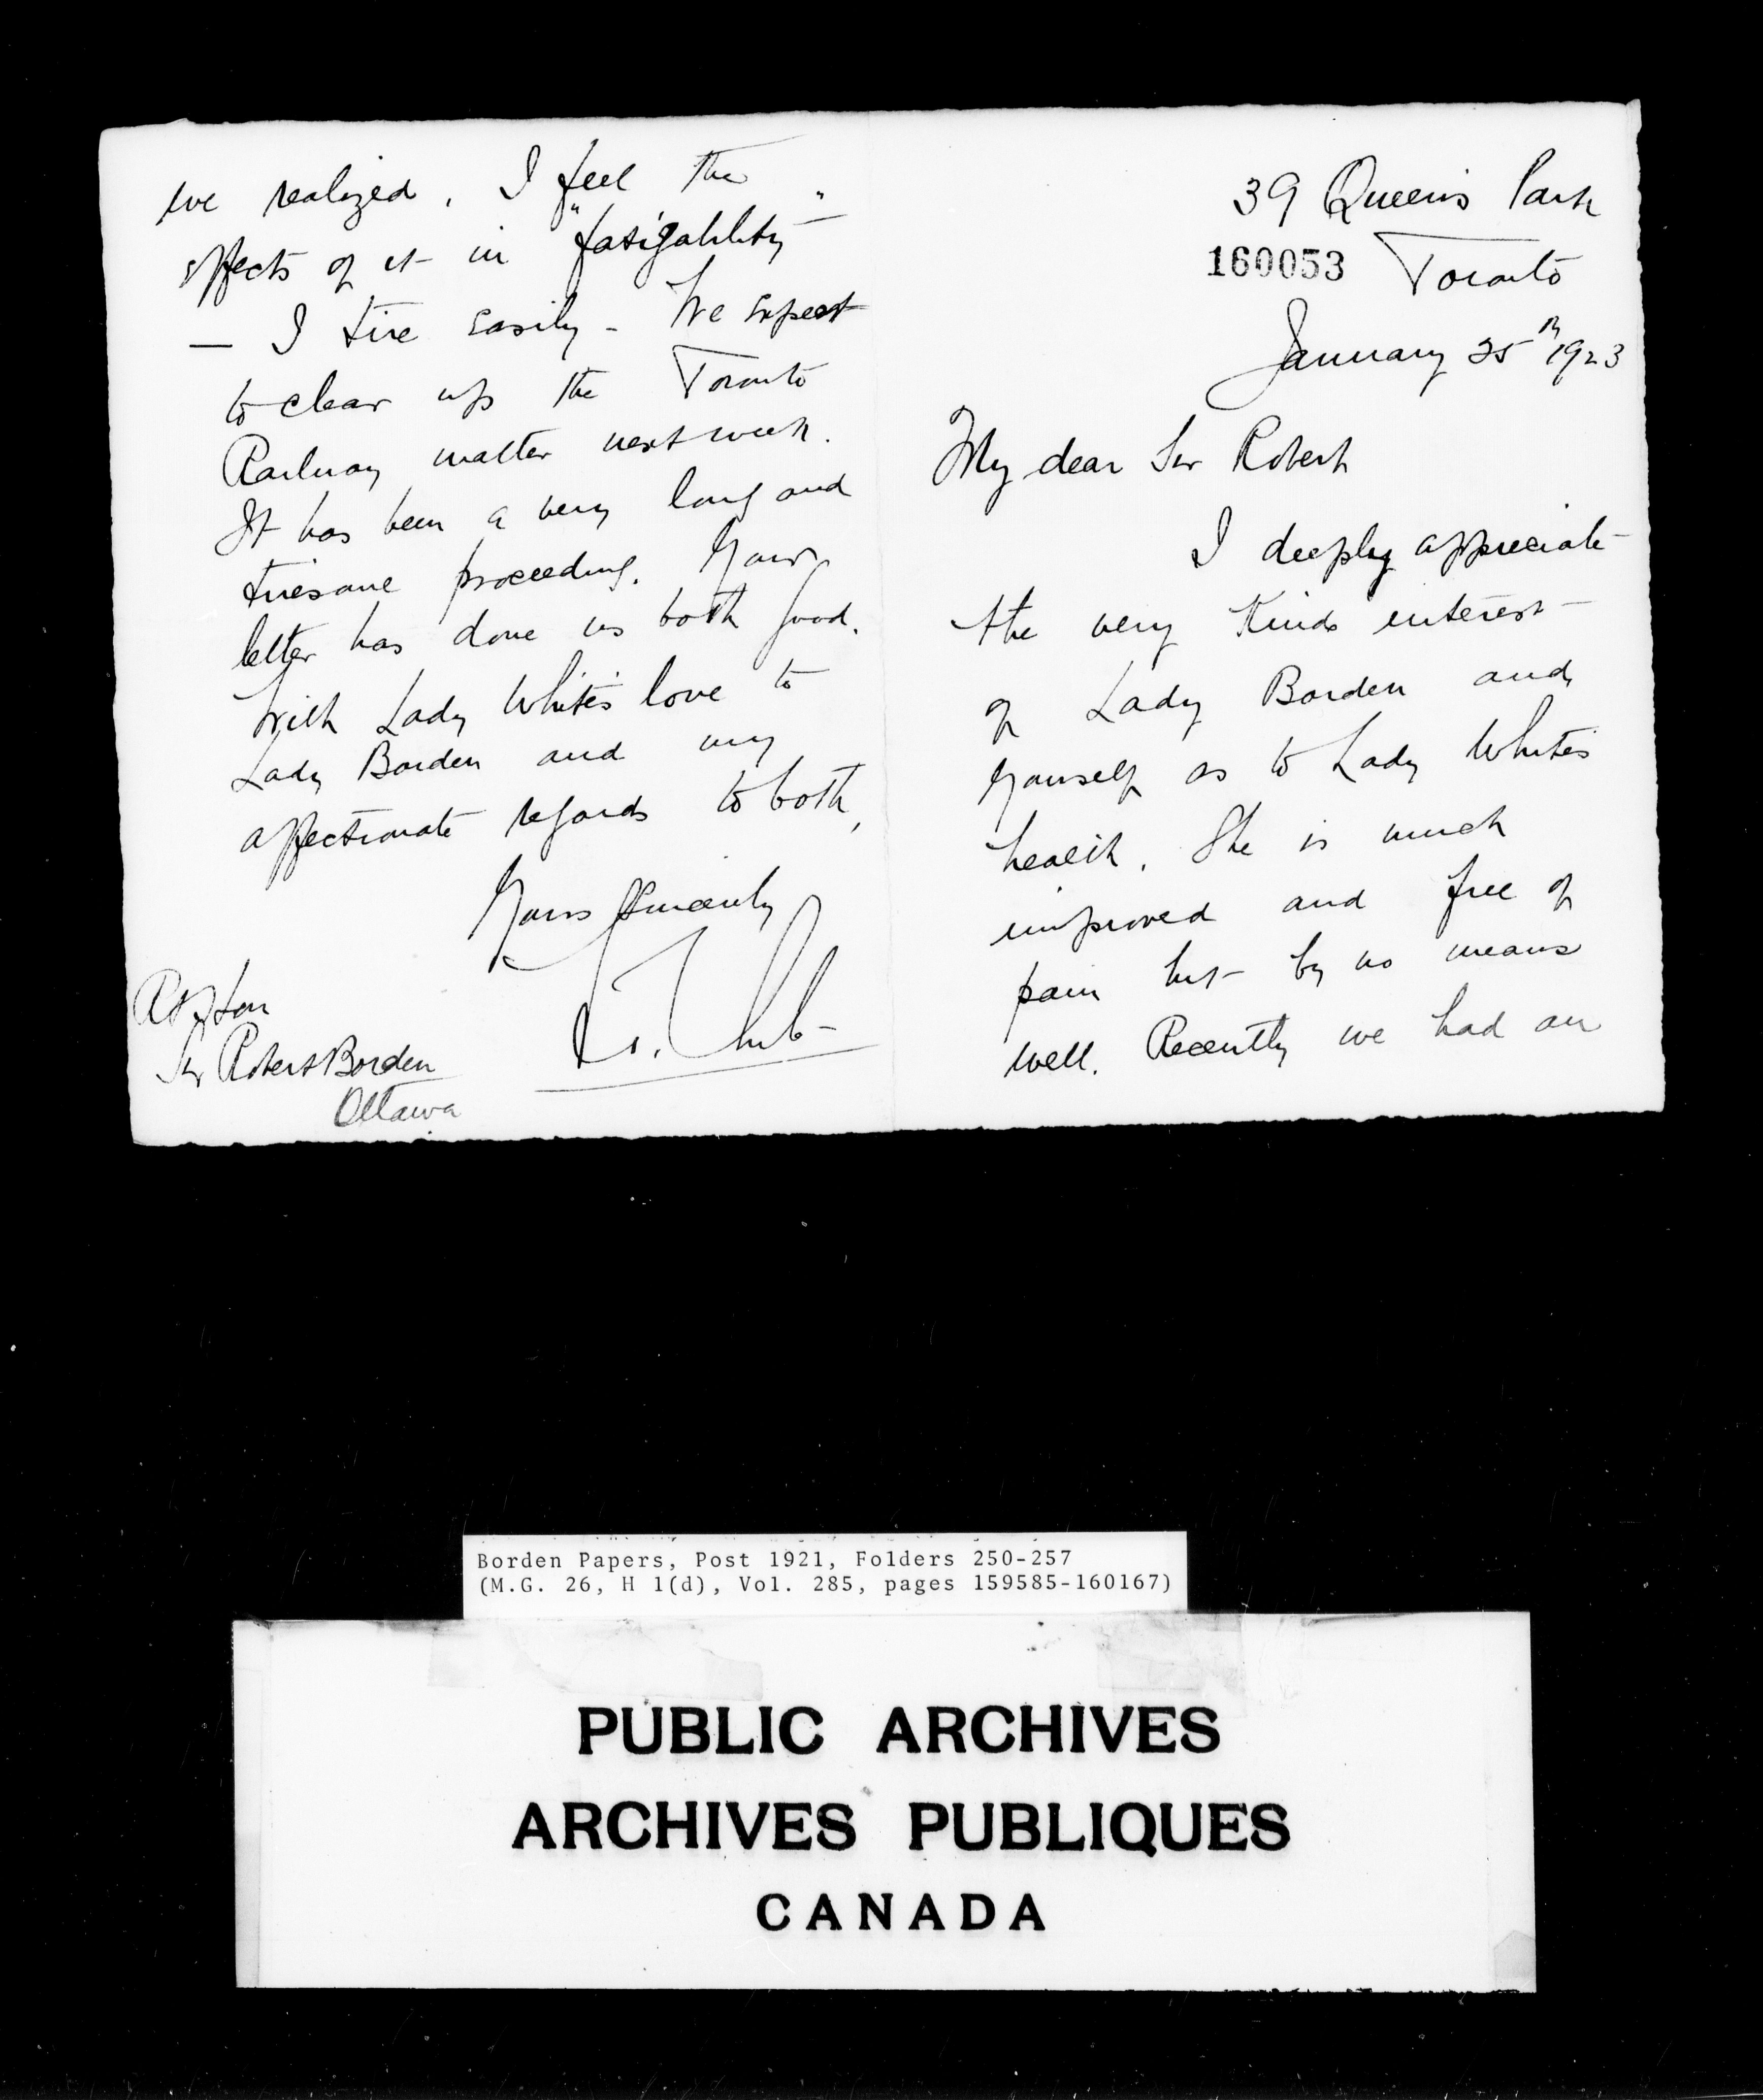 39 Queen's Park
160053 Toronto
January 25th 1923
My dear Sir Robert
I deeply appreciate
the very kind interest
of Lady Borden and
yourself as to Lady White's
health. She is much
improved and free of
pain but by no means
well. Recently we had an
we realized. I feel the
effects of it in "fatigability"
— I tire easily - We expect
to clear up the Toronto
Railway matter next week.
It has been a very long and
tiresome proceeding. Your
letter has done us both good.
With Lady White's love to
Lady Borden and my
affectionate regards to both,
Yours sincerely
W. T. White
Rt Hon
Sir Robert Borden
Ottawa
Borden Papers, Post 1921, Folders 250-257
(M.G. 26, H 1(d), Vol. 285, pages 159585-160167)
PUBLIC ARCHIVES
ARCHIVES PUBLIQUES
CANADA